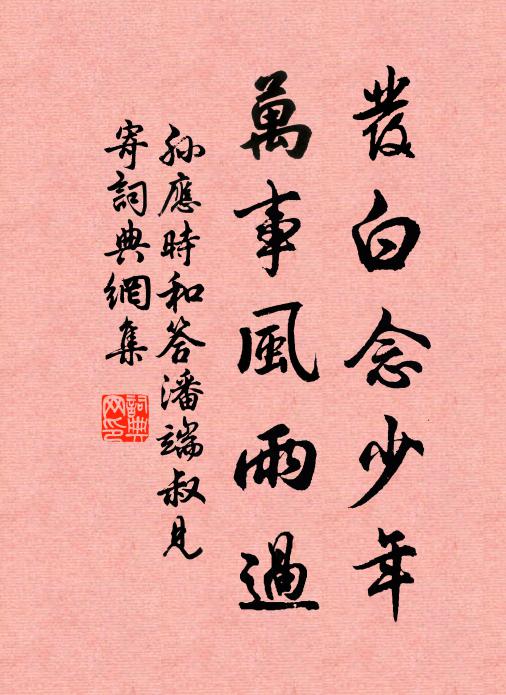 發白念少年
萬事風雨過
孫應時和答潘端叔見
寄詞典網集
詞典網印